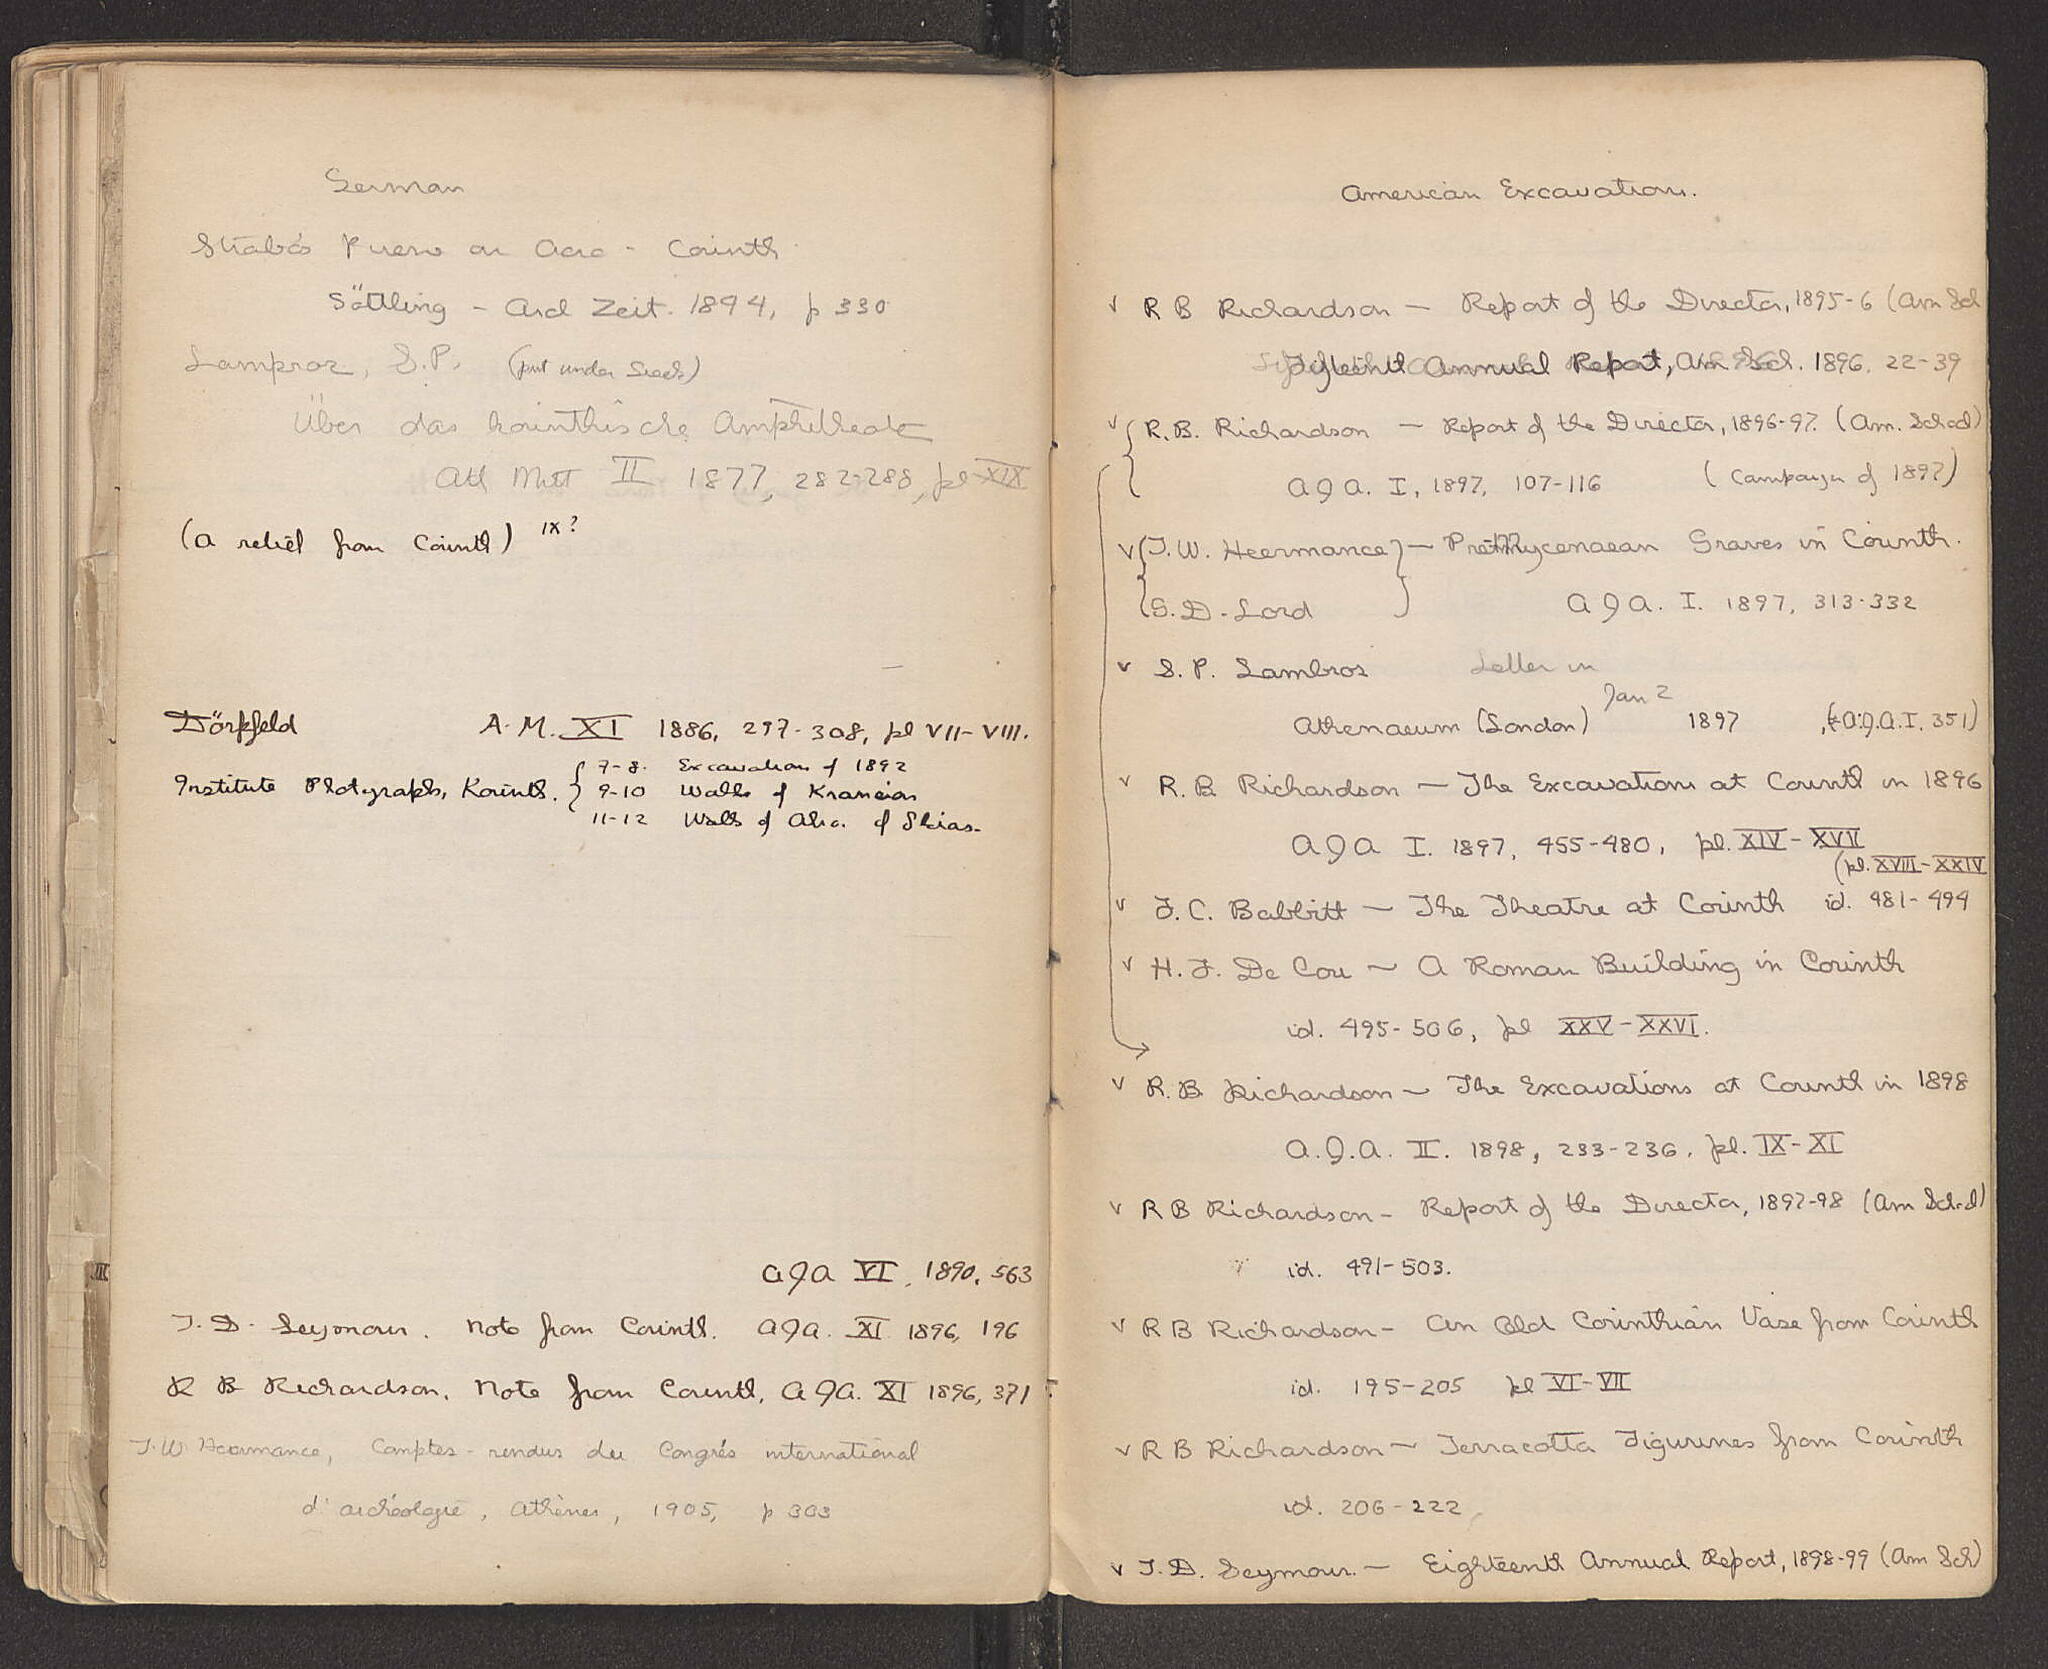 German
Strabo's Pirene on Acro - Corinth
Göttling - Arch Zeit. 1844, p 330
Lampros, S.P. (put under Greek)
Über das korinthische Amphitheater
Ath Mitt II 1877, 282-288, pl XIX
(a relief from Corinth) IX?
Dörpfeld A. M. XI 1886, 297-308, pl VII-VIII.
Institute Photographs, Korinth. { 7-8. Excavation of 1892
9-10 Walls of Kraneion
11-12 Walls of Akro. of Skias.
AJA VI, 1890, 563
T. D. Seymour. Note from Corinth. AJA. XI 1896, 196
R B Richardson. Note from Corinth, AJA. XI 1896, 371
T. W. Heermance, Comptes-rendus du Congrés international
d'archéologie, Athènes, 1905, p 303
American Excavations.
v R B Richardson — Report of the Director, 1895-6 (Am Sch
Annual Report, Am Sch. 1896. 22-39
v { R. B. Richardson — Report of the Director, 1896-97. (Am. School)
AJA. I, 1897, 107-116 (Campaign of 1897)
v { T. W. Heermance } — PreMycenaean Graves in Corinth.
{ G. D. Lord } AJA. I. 1897, 313-332
v S. P. Lambros Letter in
Athenaeum (London) Jan 2 1897, (A.J.A. I. 351)
v R. B. Richardson — The Excavations at Corinth in 1896
AJA I. 1897, 455-480, pl. XIV-XVII
(pl. XVIII-XXIV
v F. C. Babbitt — The Theatre at Corinth id. 481-494
v H. F. De Cou — A Roman Building in Corinth
id. 495-506, pl XXV-XXVI.
v R. B. Richardson — The Excavations at Corinth in 1898
A.J.A. II. 1898, 233-236. pl. IX-XI
v R B Richardson - Report of the Director, 1897-98 (Am School)
id. 491-503.
v R B Richardson - An Old Corinthian Vase from Corinth
id. 195-205 pl VI-VII
v R B Richardson — Terracotta Figurines from Corinth
id. 206-222
v T. D. Seymour. — Eighteenth Annual Report, 1898-99 (Am Sch)